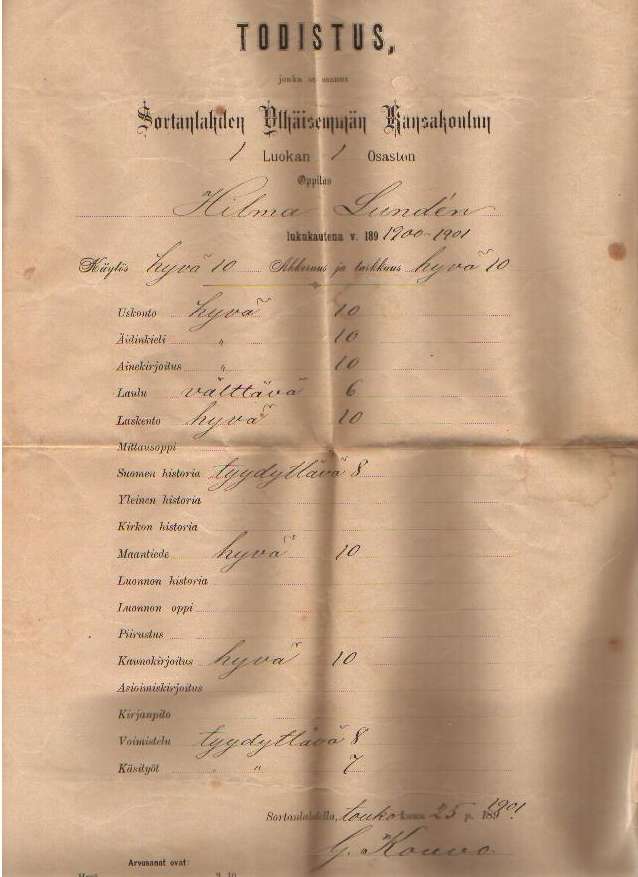 TODISTUS,
jonka on saanut
Sortanlahden Ylhäisemmän Kansakoulun
1 Luokan 1 Osaston
Oppilas
Hilma Lundén
lukukautena v. 189 1900-1901
Käytös hyvä 10 Ahkeruus ja tarkkuus hyvä 10
Uskonto hyvä 10
Äidinkieli " 10
Ainekirjoitus " 10
Laulu välttävä 6
Laskento hyvä 10
Mittausoppi
Suomen historia tyydyttävä 8
Yleinen historia
Kirkon historia
Maantiede hyvä 10
Luonnon historia
Luonnon oppi
Piirustus
Kaunokirjoitus hyvä 10
Asioimiskirjoitus
Kirjanpito
Voimistelu tyydyttävä 8
Käsityöt " " 7
Sortanlahdella, touko kuun 25 p. 189 1901.
G. Kouvo
Arvosanat ovat: